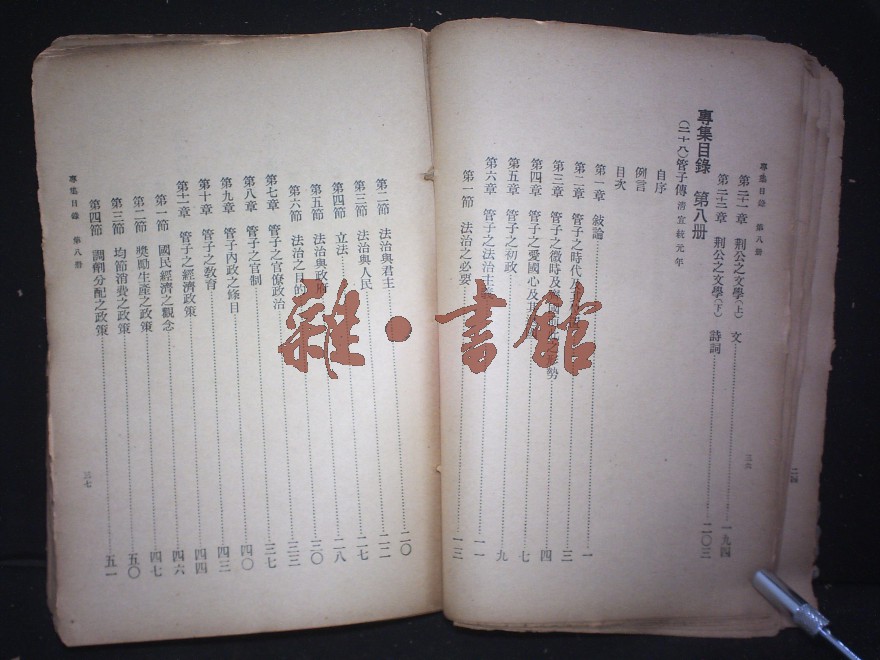 專集目錄 第八册
第二十一章 荆公之文學(上) 文 一九四
第二十二章 荆公之文學(下) 詩詞 二〇三
專集目錄 第八册
(二十八)管子傳 清宣統元年
自序
例言
目次
第一章 敍論 一
第二章 管子之時代及 三
第三章 管子之微時及 勢 四
第四章 管子之愛國心及其 七
第五章 管子之初政 九
第六章 管子之法治主 一一
第一節 法治之必要 一三
三六
二四
第二節 法治與君主 二〇
第三節 法治與人民 二二
第四節 立法 二七
第五節 法治與政府 二八
第六節 法治之目的 三〇
第七章 管子之官僚政治 三三
第八章 管子之官制 三七
第九章 管子內政之條目 四〇
第十章 管子之教育 四三
第十一章 管子之經濟政策 四四
第一節 國民經濟之觀念 四六
第二節 獎勵生產之政策 四七
第三節 均節消費之政策 五〇
第四節 調劑分配之政策 五一
專集目錄 第八册
三七
雜·書館